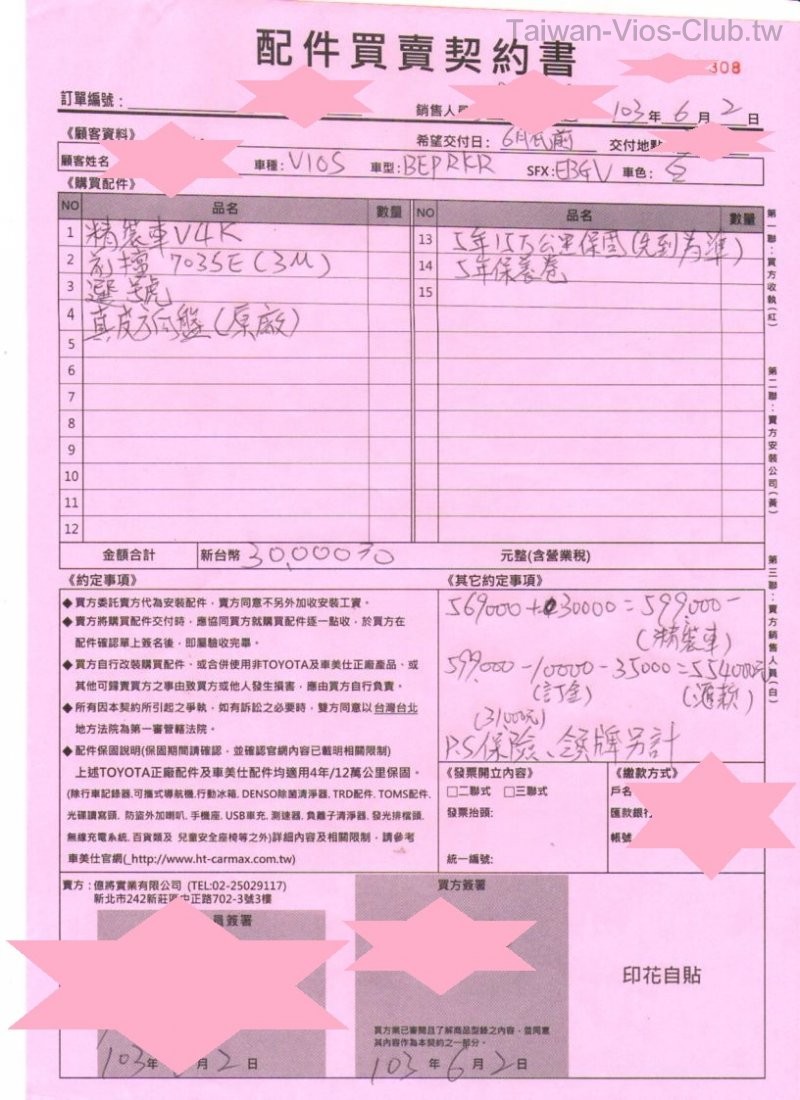 Taiwan-Vios-Club.tw
配件買賣契約書
308
訂單編號：
銷售人員
103年6月2日
《顧客資料》
希望交付日：6月底前
交付地點
顧客姓名
車種：VIOS
車型：BEPRKR
SFX：EBGV
車色：
《購買配件》
NO 品名 數量 NO 品名 數量
1 精裝車V4K
2 前擋 7035E(3M)
3 選號
4 真皮方向盤(原廠)
5
6
7
8
9
10
11
12
13 5年15万公里保固(先到為準)
14 5年保養卷
15
金額合計 新台幣 30,000元 元整(含營業稅)
《約定事項》
◆買方委託賣方代為安裝配件，賣方同意不另外加收安裝工資。
◆賣方將購買配件交付時，應協同買方就購買配件逐一點收，於買方在
配件確認單上簽名後，即屬驗收完畢。
◆買方自行改裝購買配件、或合併使用非TOYOTA及車美仕正廠產品、或
其他可歸責買方之事由致買方或他人發生損害，應由買方自行負責。
◆所有因本契約所引起之爭執，如有訴訟之必要時，雙方同意以台灣台北
地方法院為第一審管轄法院。
◆配件保固說明(保固期間請確認，並確認官網內容已載明相關限制)
上述TOYOTA正廠配件及車美仕配件均適用4年/12萬公里保固。
(除行車記錄器.可攜式導航機.行動冰箱.DENSO除菌清淨器.TRD配件.TOMS配件.
光碟讀寫頭.防盜外加喇叭.手機座.USB車充.測速器.負離子清淨器.發光排檔頭.
無線充電系統.百貨類及 兒童安全座椅等之外)詳細內容及相關限制，請參考
車美仕官網(_http://www.ht-carmax.com.tw)
《其它約定事項》
569000+30000=599,000-
(精裝車)
599,000-10000-35000=554000元
(訂金)
(匯款)
(3100元)
P.S 保險、領牌另計
《發票開立內容》
□二聯式 □三聯式
發票抬頭：
統一編號：
《繳款方式》
戶名
匯款銀行
帳號
賣方：億將實業有限公司 (TEL:02-25029117)
新北市242新莊區中正路702-3號3樓
員簽署
103年 月2日
買方簽署
買方業已審閱且了解商品型錄之內容，並同意
其內容作為本契約之一部分。
103年6月2日
印花自貼
第一聯：買方收執(紅)
第二聯：賣方安裝公司(黃)
第三聯：賣方銷售人員(白)